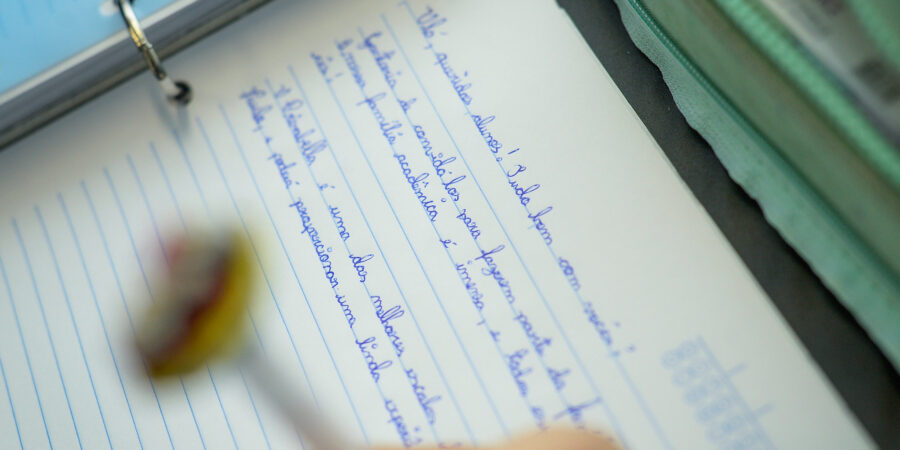 Olá, queridos alunos! Tudo bem com vocês?
Gostaria de convidá-los para fazerem parte da
nossa família acadêmica, é imensa, e todos
A Clarabella é uma das melhores escolas
e poderá proporcionar uma linda